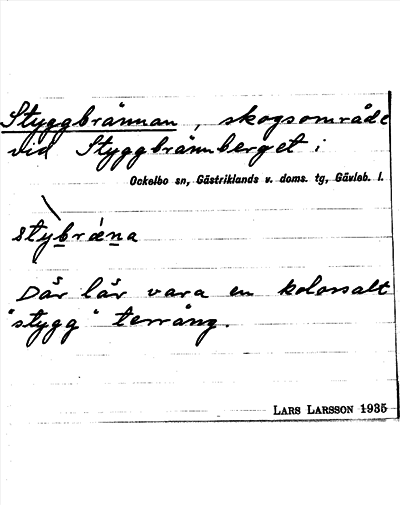 Styggbrännan, skogsområde
vid Styggbrännberget i
Ockelbo sn, Gästriklands v. doms. tg, Gävleb. l.
stybrǽna
Där lär vara en kolossalt
"stygg" terräng.
LARS LARSSON 1935